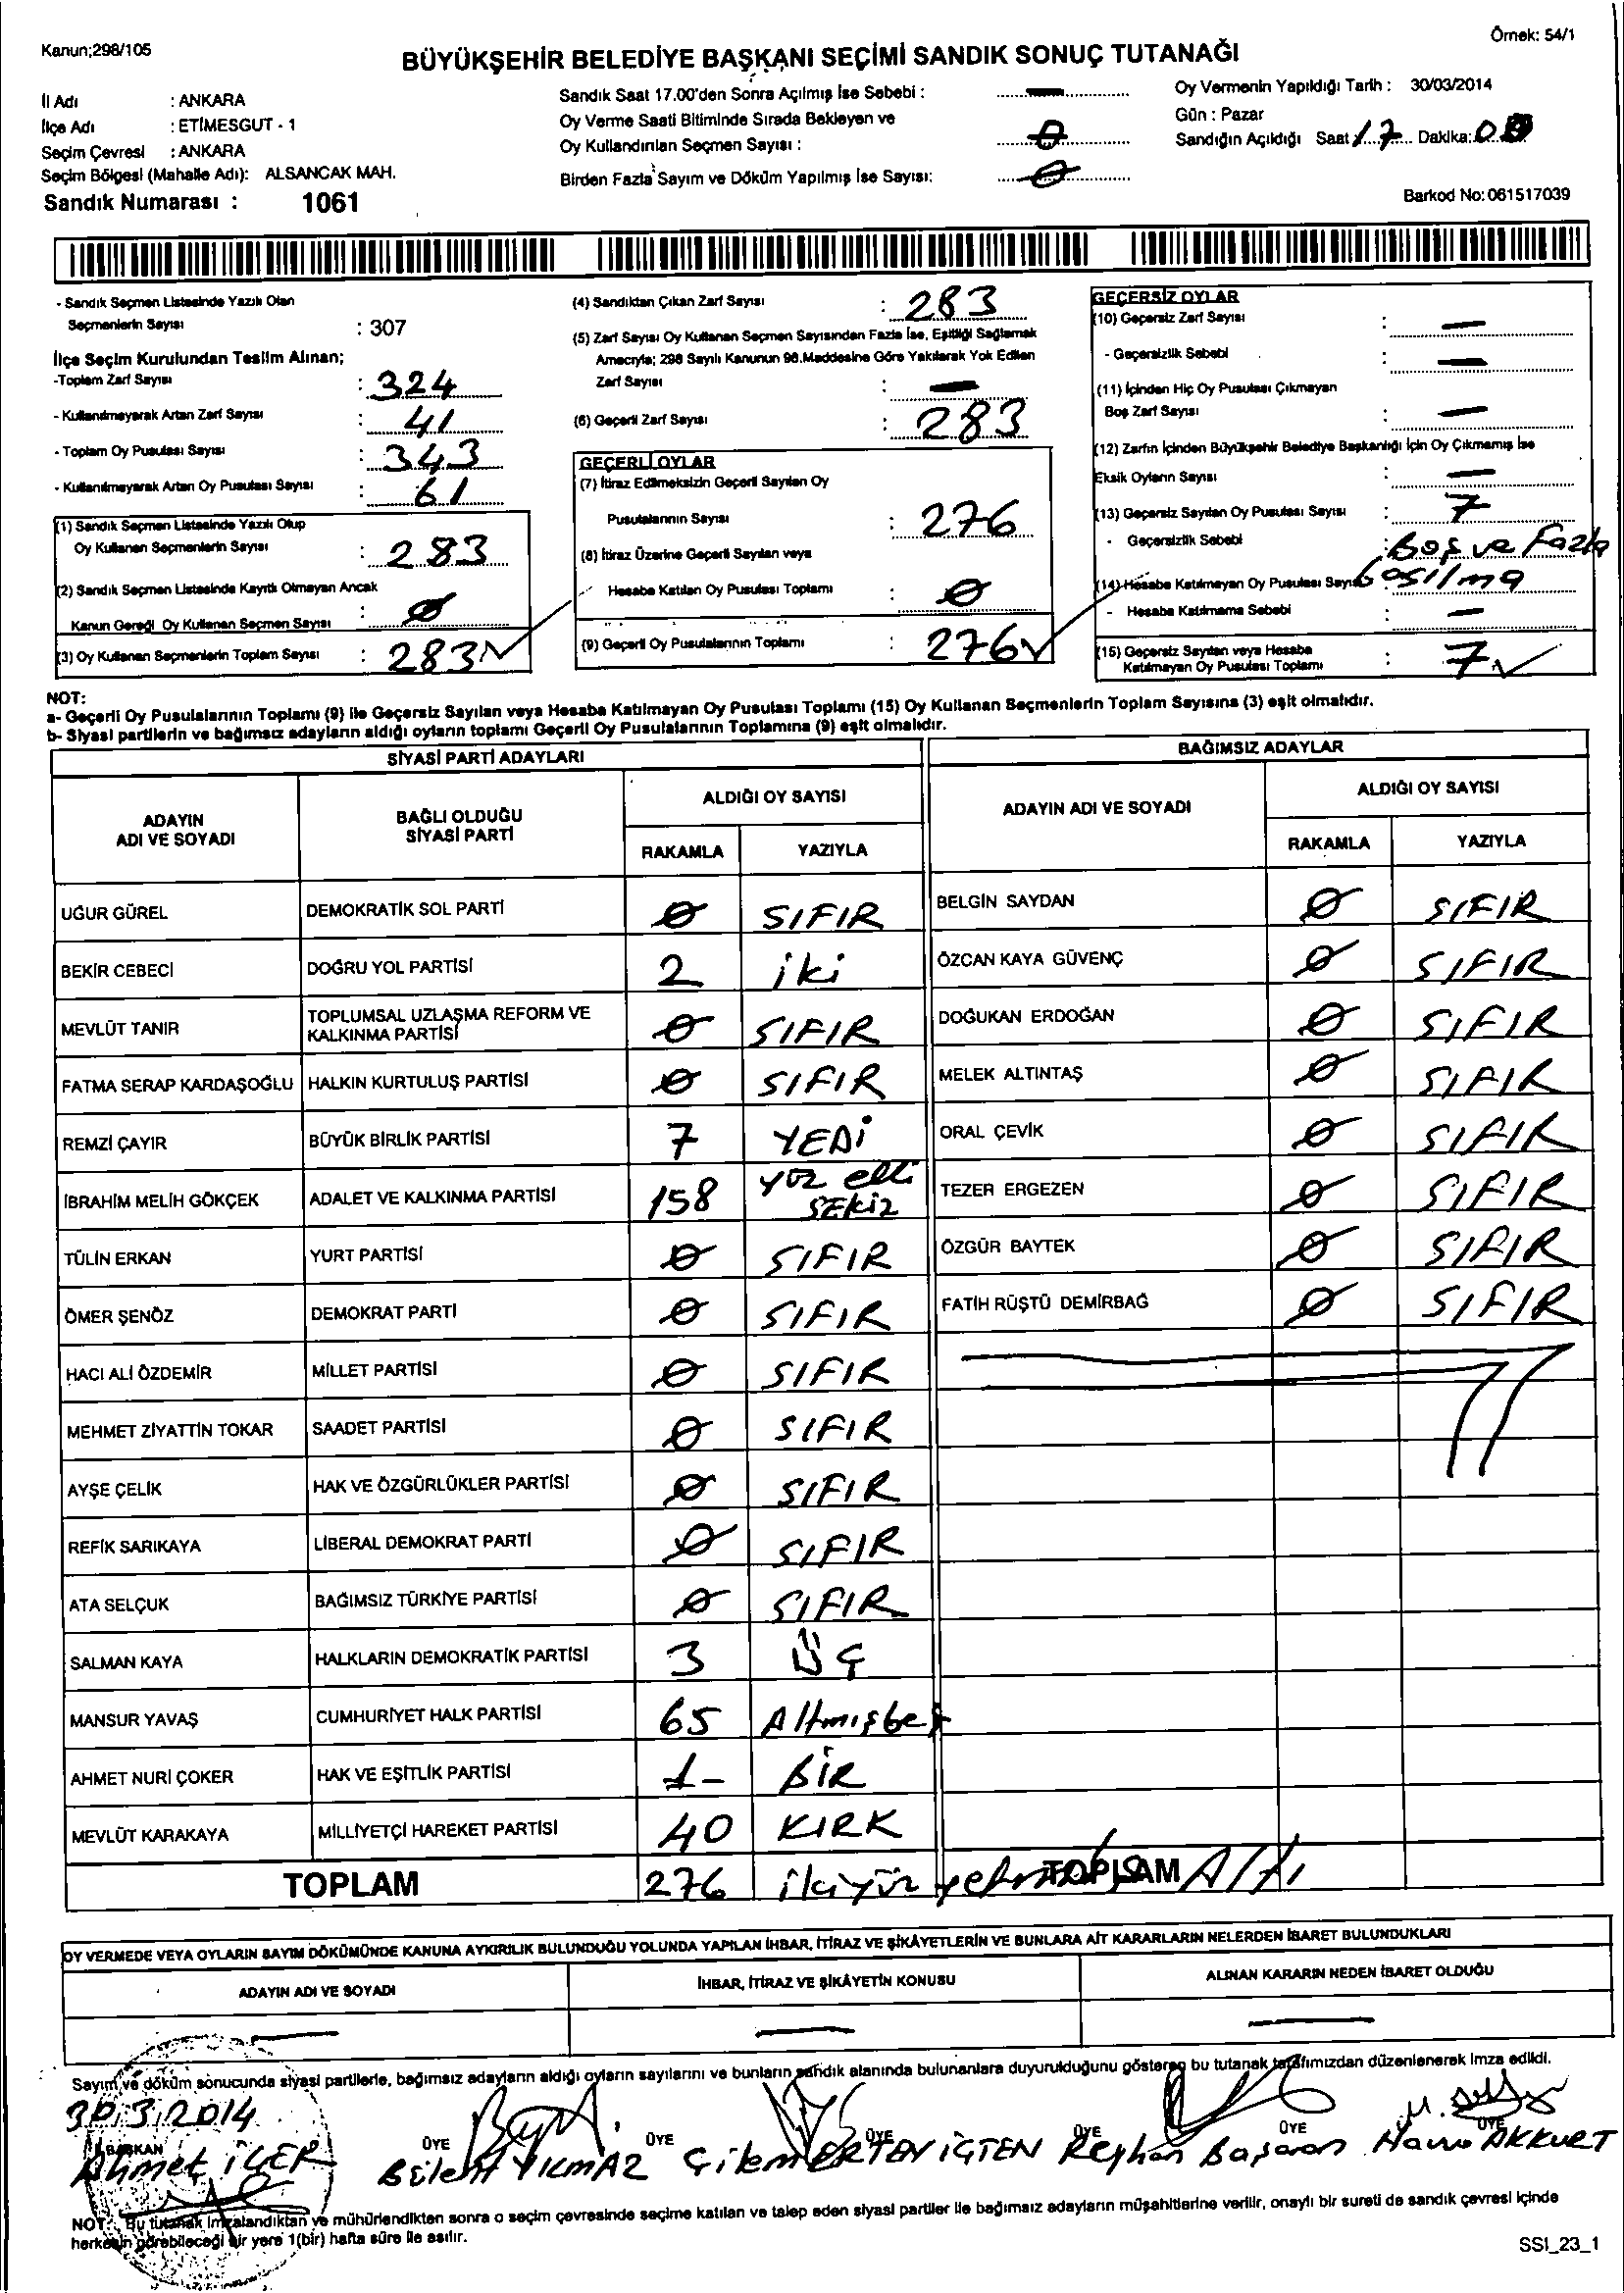 Kanun;298/105
Örnek: 54/1
BÜYÜKŞEHİR BELEDİYE BAŞKANI SEÇİMİ SANDIK SONUÇ TUTANAĞI
İl Adı : ANKARA
İlçe Adı : ETİMESGUT - 1
Seçim Çevresi : ANKARA
Seçim Bölgesi (Mahalle Adı): ALSANCAK MAH.
Sandık Numarası : 1061
Sandık Saat 17.00'den Sonra Açılmış İse Sebebi : —
Oy Verme Saati Bitiminde Sırada Bekleyen ve
Oy Kullandırılan Seçmen Sayısı : 0
Birden Fazla Sayım ve Döküm Yapılmış İse Sayısı: 0
Oy Vermenin Yapıldığı Tarih : 30/03/2014
Gün : Pazar
Sandığın Açıldığı Saat 17 Dakika: 00
Barkod No: 061517039
- Sandık Seçmen Listesinde Yazılı Olan
Seçmenlerin Sayısı : 307
İlçe Seçim Kurulundan Teslim Alınan;
-Toplam Zarf Sayısı : 324
- Kullanılmayarak Artan Zarf Sayısı : 41
- Toplam Oy Pusulası Sayısı : 343
- Kullanılmayarak Artan Oy Pusulası Sayısı : 61
(1) Sandık Seçmen Listesinde Yazılı Olup
Oy Kullanan Seçmenlerin Sayısı : 283
(2) Sandık Seçmen Listesinde Kayıtlı Olmayan Ancak
Kanun Gereği Oy Kullanan Seçmen Sayısı : 0
(3) Oy Kullanan Seçmenlerin Toplam Sayısı : 283
(4) Sandıktan Çıkan Zarf Sayısı : 283
(5) Zarf Sayısı Oy Kullanan Seçmen Sayısından Fazla İse, Eşitliği Sağlamak
Amacıyla; 298 Sayılı Kanunun 98.Maddesine Göre Yakılarak Yok Edilen
Zarf Sayısı : —
(6) Geçerli Zarf Sayısı : 283
GEÇERLİ OYLAR
(7) İtiraz Edilmeksizin Geçerli Sayılan Oy
Pusulalarının Sayısı : 276
(8) İtiraz Üzerine Geçerli Sayılan veya
Hesaba Katılan Oy Pusulası Toplamı : 0
(9) Geçerli Oy Pusulalarının Toplamı : 276
GEÇERSİZ OYLAR
(10) Geçersiz Zarf Sayısı : —
- Geçersizlik Sebebi : —
(11) İçinden Hiç Oy Pusulası Çıkmayan
Boş Zarf Sayısı : —
(12) Zarfın İçinden Büyükşehir Belediye Başkanlığı İçin Oy Çıkmamış İse
Eksik Oyların Sayısı : —
(13) Geçersiz Sayılan Oy Pusulası Sayısı : 7
- Geçersizlik Sebebi : Boş ve Fazla
basılma
(14) Hesaba Katılmayan Oy Pusulası Sayısı
- Hesaba Katılmama Sebebi : —
(15) Geçersiz Sayılan veya Hesaba
Katılmayan Oy Pusulası Toplamı : 7
NOT:
a- Geçerli Oy Pusulalarının Toplamı (9) ile Geçersiz Sayılan veya Hesaba Katılmayan Oy Pusulası Toplamı (15) Oy Kullanan Seçmenlerin Toplam Sayısına (3) eşit olmalıdır.
b- Siyasi partilerin ve bağımsız adayların aldığı oyların toplamı Geçerli Oy Pusulalarının Toplamına (9) eşit olmalıdır.
SİYASİ PARTİ ADAYLARI
ADAYIN ADI VE SOYADI
BAĞLI OLDUĞU SİYASİ PARTİ
ALDIĞI OY SAYISI
RAKAMLA YAZIYLA
UĞUR GÜREL DEMOKRATİK SOL PARTİ 0 SIFIR
BEKİR CEBECİ DOĞRU YOL PARTİSİ 2 iki
MEVLÜT TANIR TOPLUMSAL UZLAŞMA REFORM VE KALKINMA PARTİSİ 0 SIFIR
FATMA SERAP KARDAŞOĞLU HALKIN KURTULUŞ PARTİSİ 0 SIFIR
REMZİ ÇAYIR BÜYÜK BİRLİK PARTİSİ 7 YEDİ
İBRAHİM MELİH GÖKÇEK ADALET VE KALKINMA PARTİSİ 158 YÜZ elli SEKİZ
TÜLİN ERKAN YURT PARTİSİ 0 SIFIR
ÖMER ŞENÖZ DEMOKRAT PARTİ 0 SIFIR
HACI ALİ ÖZDEMİR MİLLET PARTİSİ 0 SIFIR
MEHMET ZİYATTİN TOKAR SAADET PARTİSİ 0 SIFIR
AYŞE ÇELİK HAK VE ÖZGÜRLÜKLER PARTİSİ 0 SIFIR
REFİK SARIKAYA LİBERAL DEMOKRAT PARTİ 0 SIFIR
ATA SELÇUK BAĞIMSIZ TÜRKİYE PARTİSİ 0 SIFIR
SALMAN KAYA HALKLARIN DEMOKRATİK PARTİSİ 3 ÜÇ
MANSUR YAVAŞ CUMHURİYET HALK PARTİSİ 65 Altmışbeş
AHMET NURİ ÇOKER HAK VE EŞİTLİK PARTİSİ 1- BİR
MEVLÜT KARAKAYA MİLLİYETÇİ HAREKET PARTİSİ 40 KIRK
TOPLAM 276 ikiyüz yetmiş Altı
BAĞIMSIZ ADAYLAR
ADAYIN ADI VE SOYADI
ALDIĞI OY SAYISI
RAKAMLA YAZIYLA
BELGİN SAYDAN 0 SIFIR
ÖZCAN KAYA GÜVENÇ 0 SIFIR
DOĞUKAN ERDOĞAN 0 SIFIR
MELEK ALTINTAŞ 0 SIFIR
ORAL ÇEVİK 0 SIFIR
TEZER ERGEZEN 0 SIFIR
ÖZGÜR BAYTEK 0 SIFIR
FATİH RÜŞTÜ DEMİRBAĞ 0 SIFIR
TOPLAM
OY VERMEDE VEYA OYLARIN SAYIM DÖKÜMÜNDE KANUNA AYKIRILIK BULUNDUĞU YOLUNDA YAPILAN İHBAR, İTİRAZ VE ŞİKÂYETLERİN VE BUNLARA AİT KARARLARIN NELERDEN İBARET BULUNDUKLARI
ADAYIN ADI VE SOYADI İHBAR, İTİRAZ VE ŞİKÂYETİN KONUSU ALINAN KARARIN NEDEN İBARET OLDUĞU
— — —
Sayım ve döküm sonucunda siyasi partilerle, bağımsız adayların aldığı oyların sayılarını ve bunların sandık alanında bulunanlara duyurulduğunu gösteren bu tutanak tarafımızdan düzenlenerek imza edildi.
30.3.2014
BAŞKAN ÜYE ÜYE ÜYE ÜYE ÜYE
Ahmet İÇER Bülent YILMAZ Çiğdem ERTEN İÇTEN Reyhan Başaran AKKURT
NOT: Bu tutanak imzalandıktan ve mühürlendikten sonra o seçim çevresinde seçime katılan ve talep eden siyasi partiler ile bağımsız adayların müşahitlerine verilir, onaylı bir sureti de sandık çevresi içinde
herkesin görebileceği bir yere 1(bir) hafta süre ile asılır.
SSI_23_1